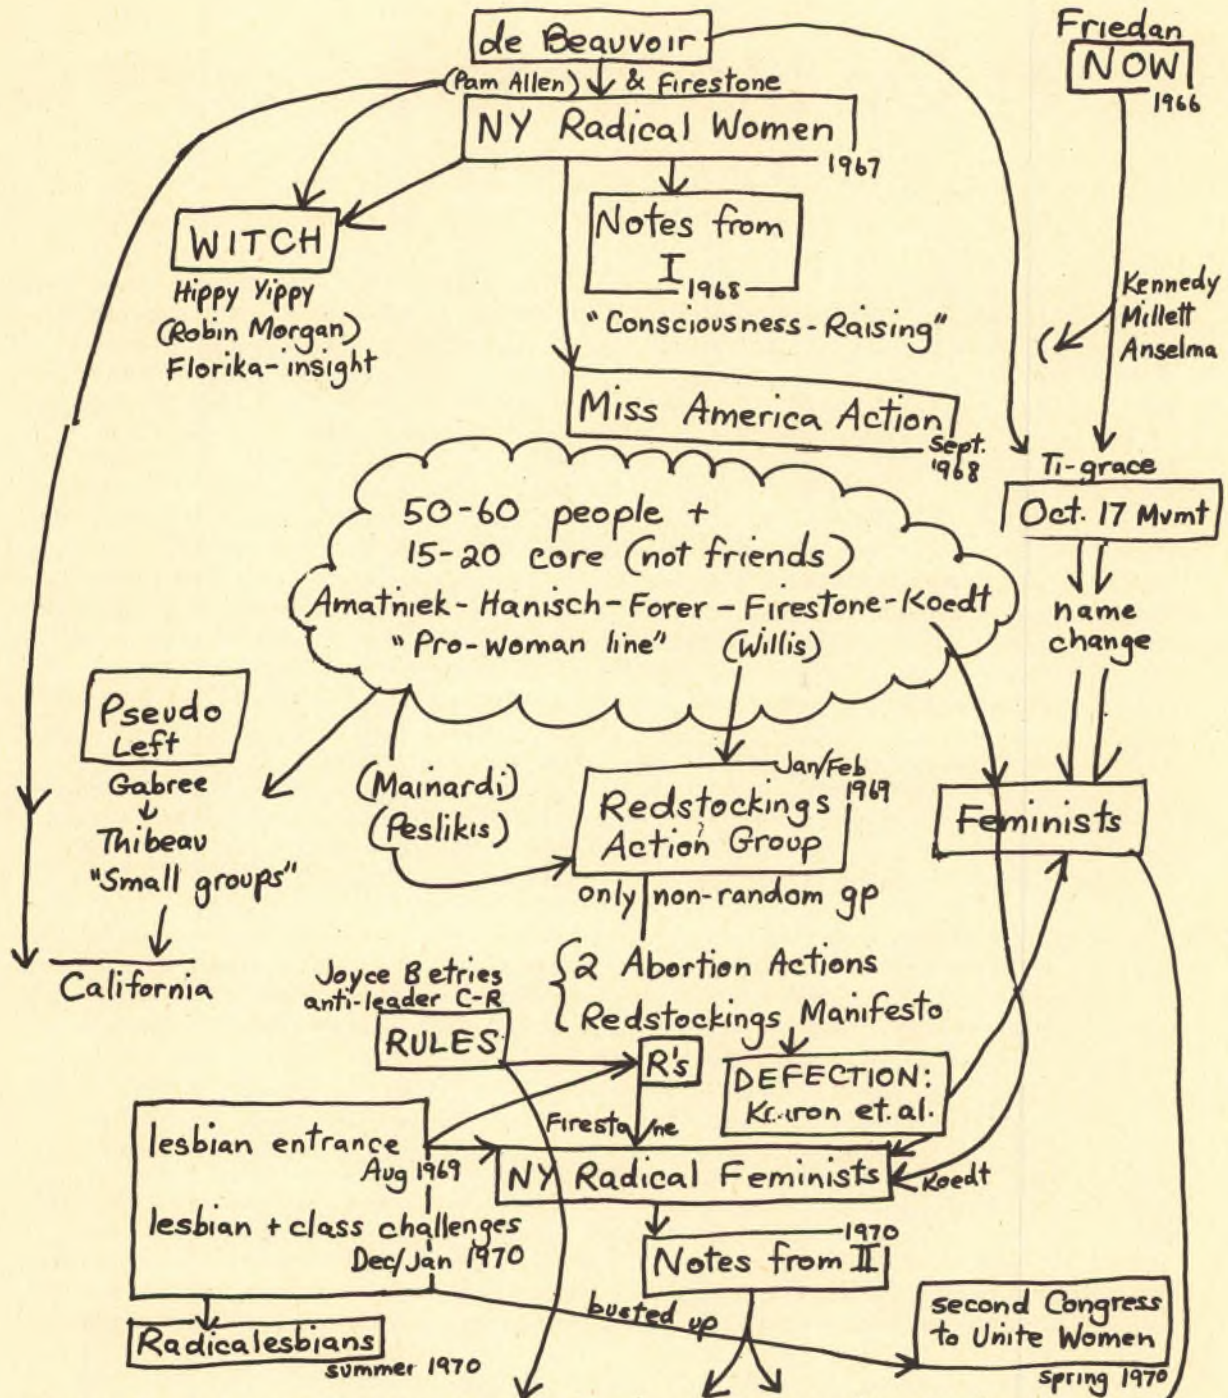 de Beauvoir
Friedan
NOW
1966
(Pam Allen) & Firestone
NY Radical Women
1967
WITCH
Hippy Yippy
(Robin Morgan)
Florika-insight
Notes from
I
1968
"Consciousness-Raising"
Kennedy
Millett
Anselma
Miss America Action
Sept.
1968
Ti-grace
Oct. 17 Mvmt
name
change
50-60 people +
15-20 core (not friends)
Amatniek-Hanisch-Forer-Firestone-Koedt
"Pro-woman line" (Willis)
Pseudo
Left
Gabree
Thibeau
"Small groups"
California
(Mainardi)
(Peslikis)
Jan/Feb
1969
Redstockings
Action Group
only non-random gp
Feminists
2 Abortion Actions
Redstockings Manifesto
Joyce Betries
anti-leader C-R
RULES
R's
DEFECTION:
et.al.
Firestone
lesbian entrance
Aug 1969
lesbian + class challenges
Dec/Jan 1970
NY Radical Feminists
Koedt
1970
Notes from II
busted up
Radicalesbians
summer 1970
second Congress
to Unite Women
spring 1970